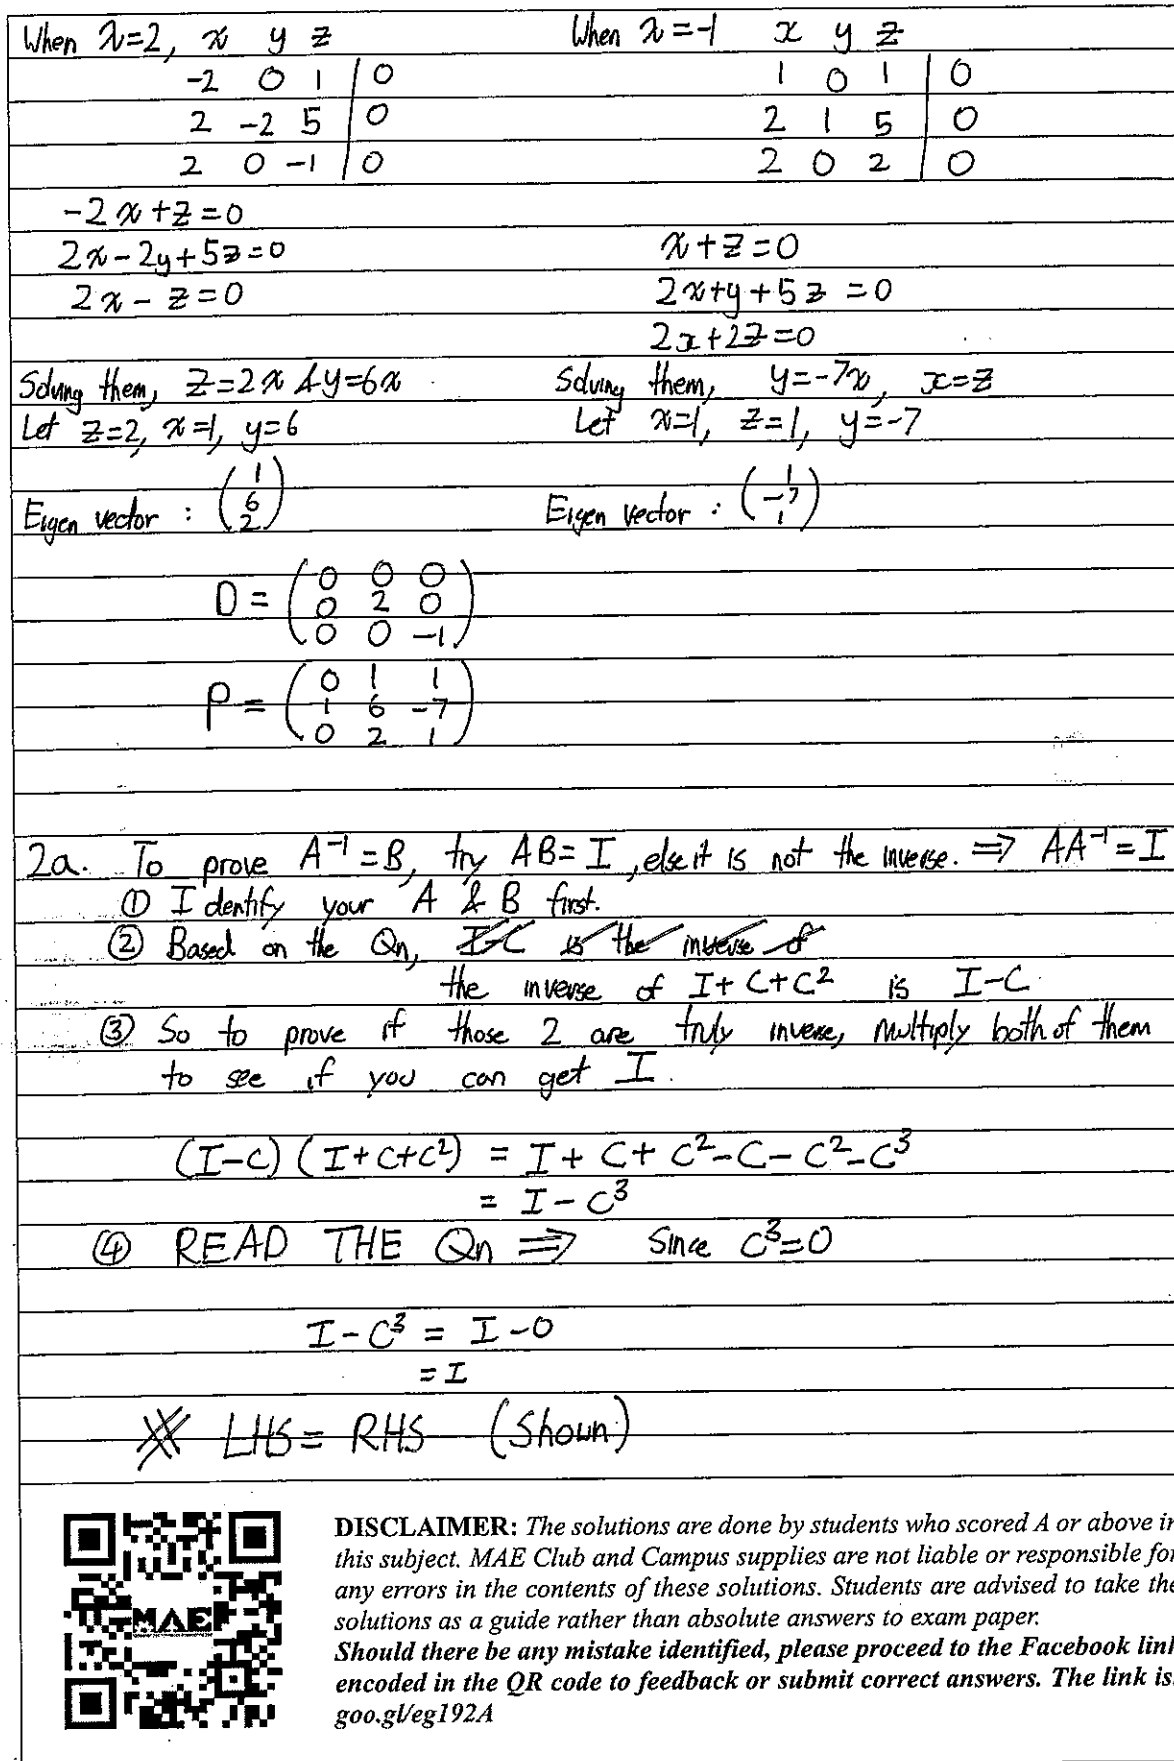 When λ=2, x y z
-2 0 1 | 0
2 -2 5 | 0
2 0 -1 | 0
-2x+z=0
2x-2y+5z=0
2x-z=0
Solving them, z=2x & y=6x
Let z=2, x=1, y=6
Eigen vector : (1 6 2)
When λ=-1 x y z
1 0 1 | 0
2 1 5 | 0
2 0 2 | 0
x+z=0
2x+y+5z=0
2x+2z=0
Solving them, y=-7x, x=z
Let x=1, z=1, y=-7
Eigen vector : (1 -7 1)
D = (0 0 0
0 2 0
0 0 -1)
P = (0 1 1
1 6 -7
0 2 1)
2a. To prove A⁻¹=B, try AB=I, else it is not the inverse. ⇒ AA⁻¹=I
① Identify your A & B first.
② Based on the Qn, I-C is the inverse of
the inverse of I+C+C² is I-C.
③ So to prove if those 2 are truly inverse, multiply both of them
to see if you can get I.
(I-C)(I+C+C²) = I+C+C²-C-C²-C³
= I-C³
④ READ THE Qn ⇒ Since C³=0
I-C³ = I-0
= I
※ LHS = RHS (Shown)
MAE
DISCLAIMER: The solutions are done by students who scored A or above in
this subject. MAE Club and Campus supplies are not liable or responsible for
any errors in the contents of these solutions. Students are advised to take the
solutions as a guide rather than absolute answers to exam paper.
Should there be any mistake identified, please proceed to the Facebook link
encoded in the QR code to feedback or submit correct answers. The link is:
goo.gl/eg192A